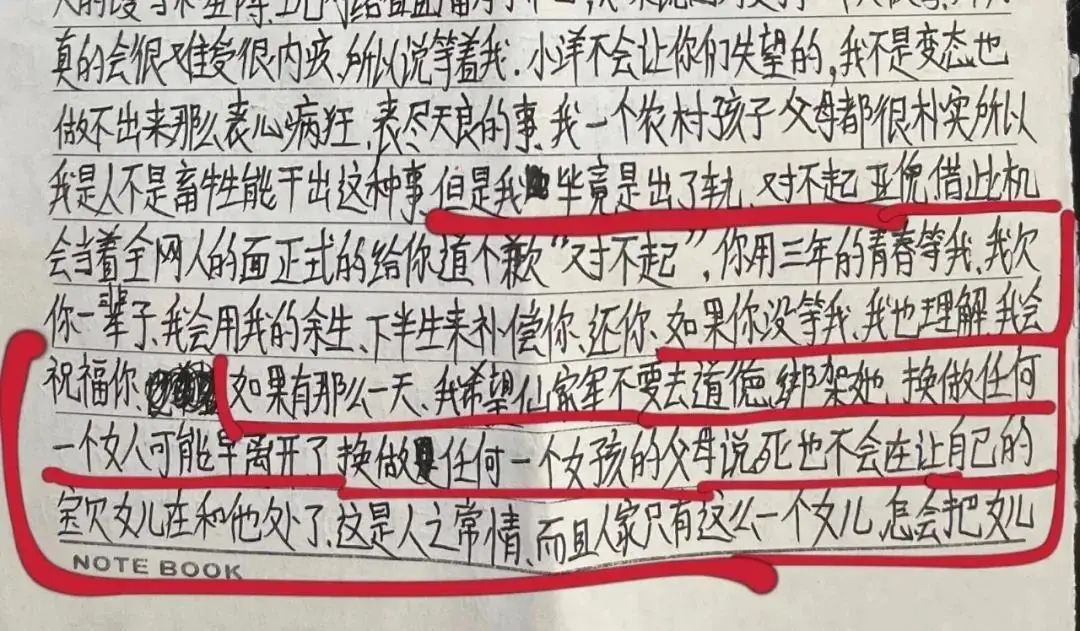 真的会很难受很内疚、所以说等着我．小洋不会让你们失望的，我不是变态也
做不出来那么丧心病狂、丧尽天良的事、我一个农村孩子父母都很朴实所以
我是人不是畜牲能干出这种事、但是我毕竟是出了轨、对不起亚倪、借此机
会当着全网人的面正式的给你道个歉“对不起”，你用三年的青春等我、我欠
你一辈子、我会用我的余生、下半生来补偿你、还你、如果你没等我、我也理解我会
祝福你、如果有那么一天、我希望仙家军不要去道德绑架她、换做任何
一个女人可能早离开了换做任何一个女孩的父母说死也不会在让自己的
宝贝女儿在和他处了、这是人之常情、而且人家只有这么一个女儿、怎会把女儿
NOTE BOOK